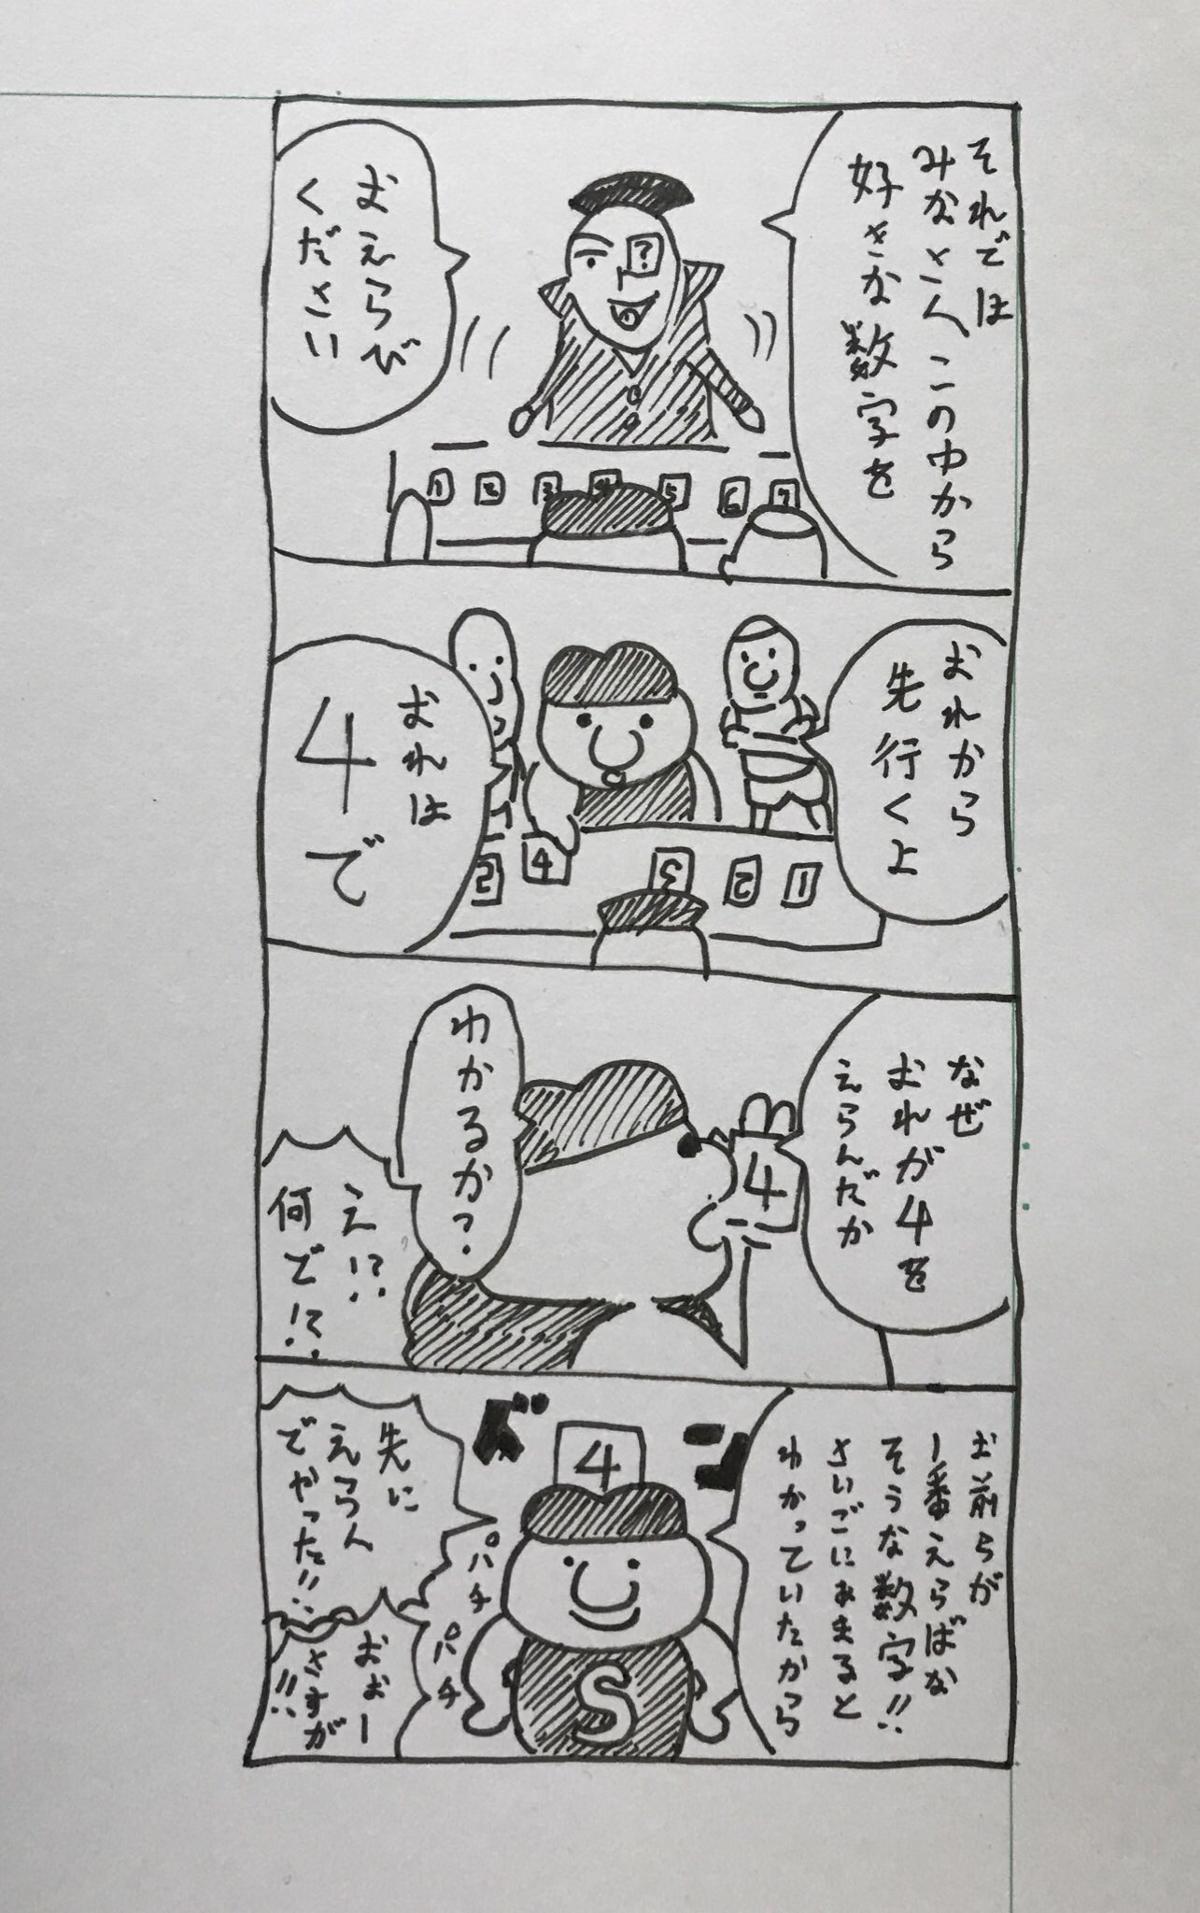 それでは
みなさんこの中から
好きな数字を
おえらび
ください
?
1 2 3 4 5 6 7
おれから
先行くよ
おれは
4
で
5 4 3 2 1
なぜ
おれが4を
えらんだか
4
わかるか?
え!?
何で!?
お前らが
1番えらばな
そうな数字!!
さいごにあまると
わかっていたから
ドン
4
S
パチ
パチ
先に
えらん
でやった!!
おぉー
さすが
!!